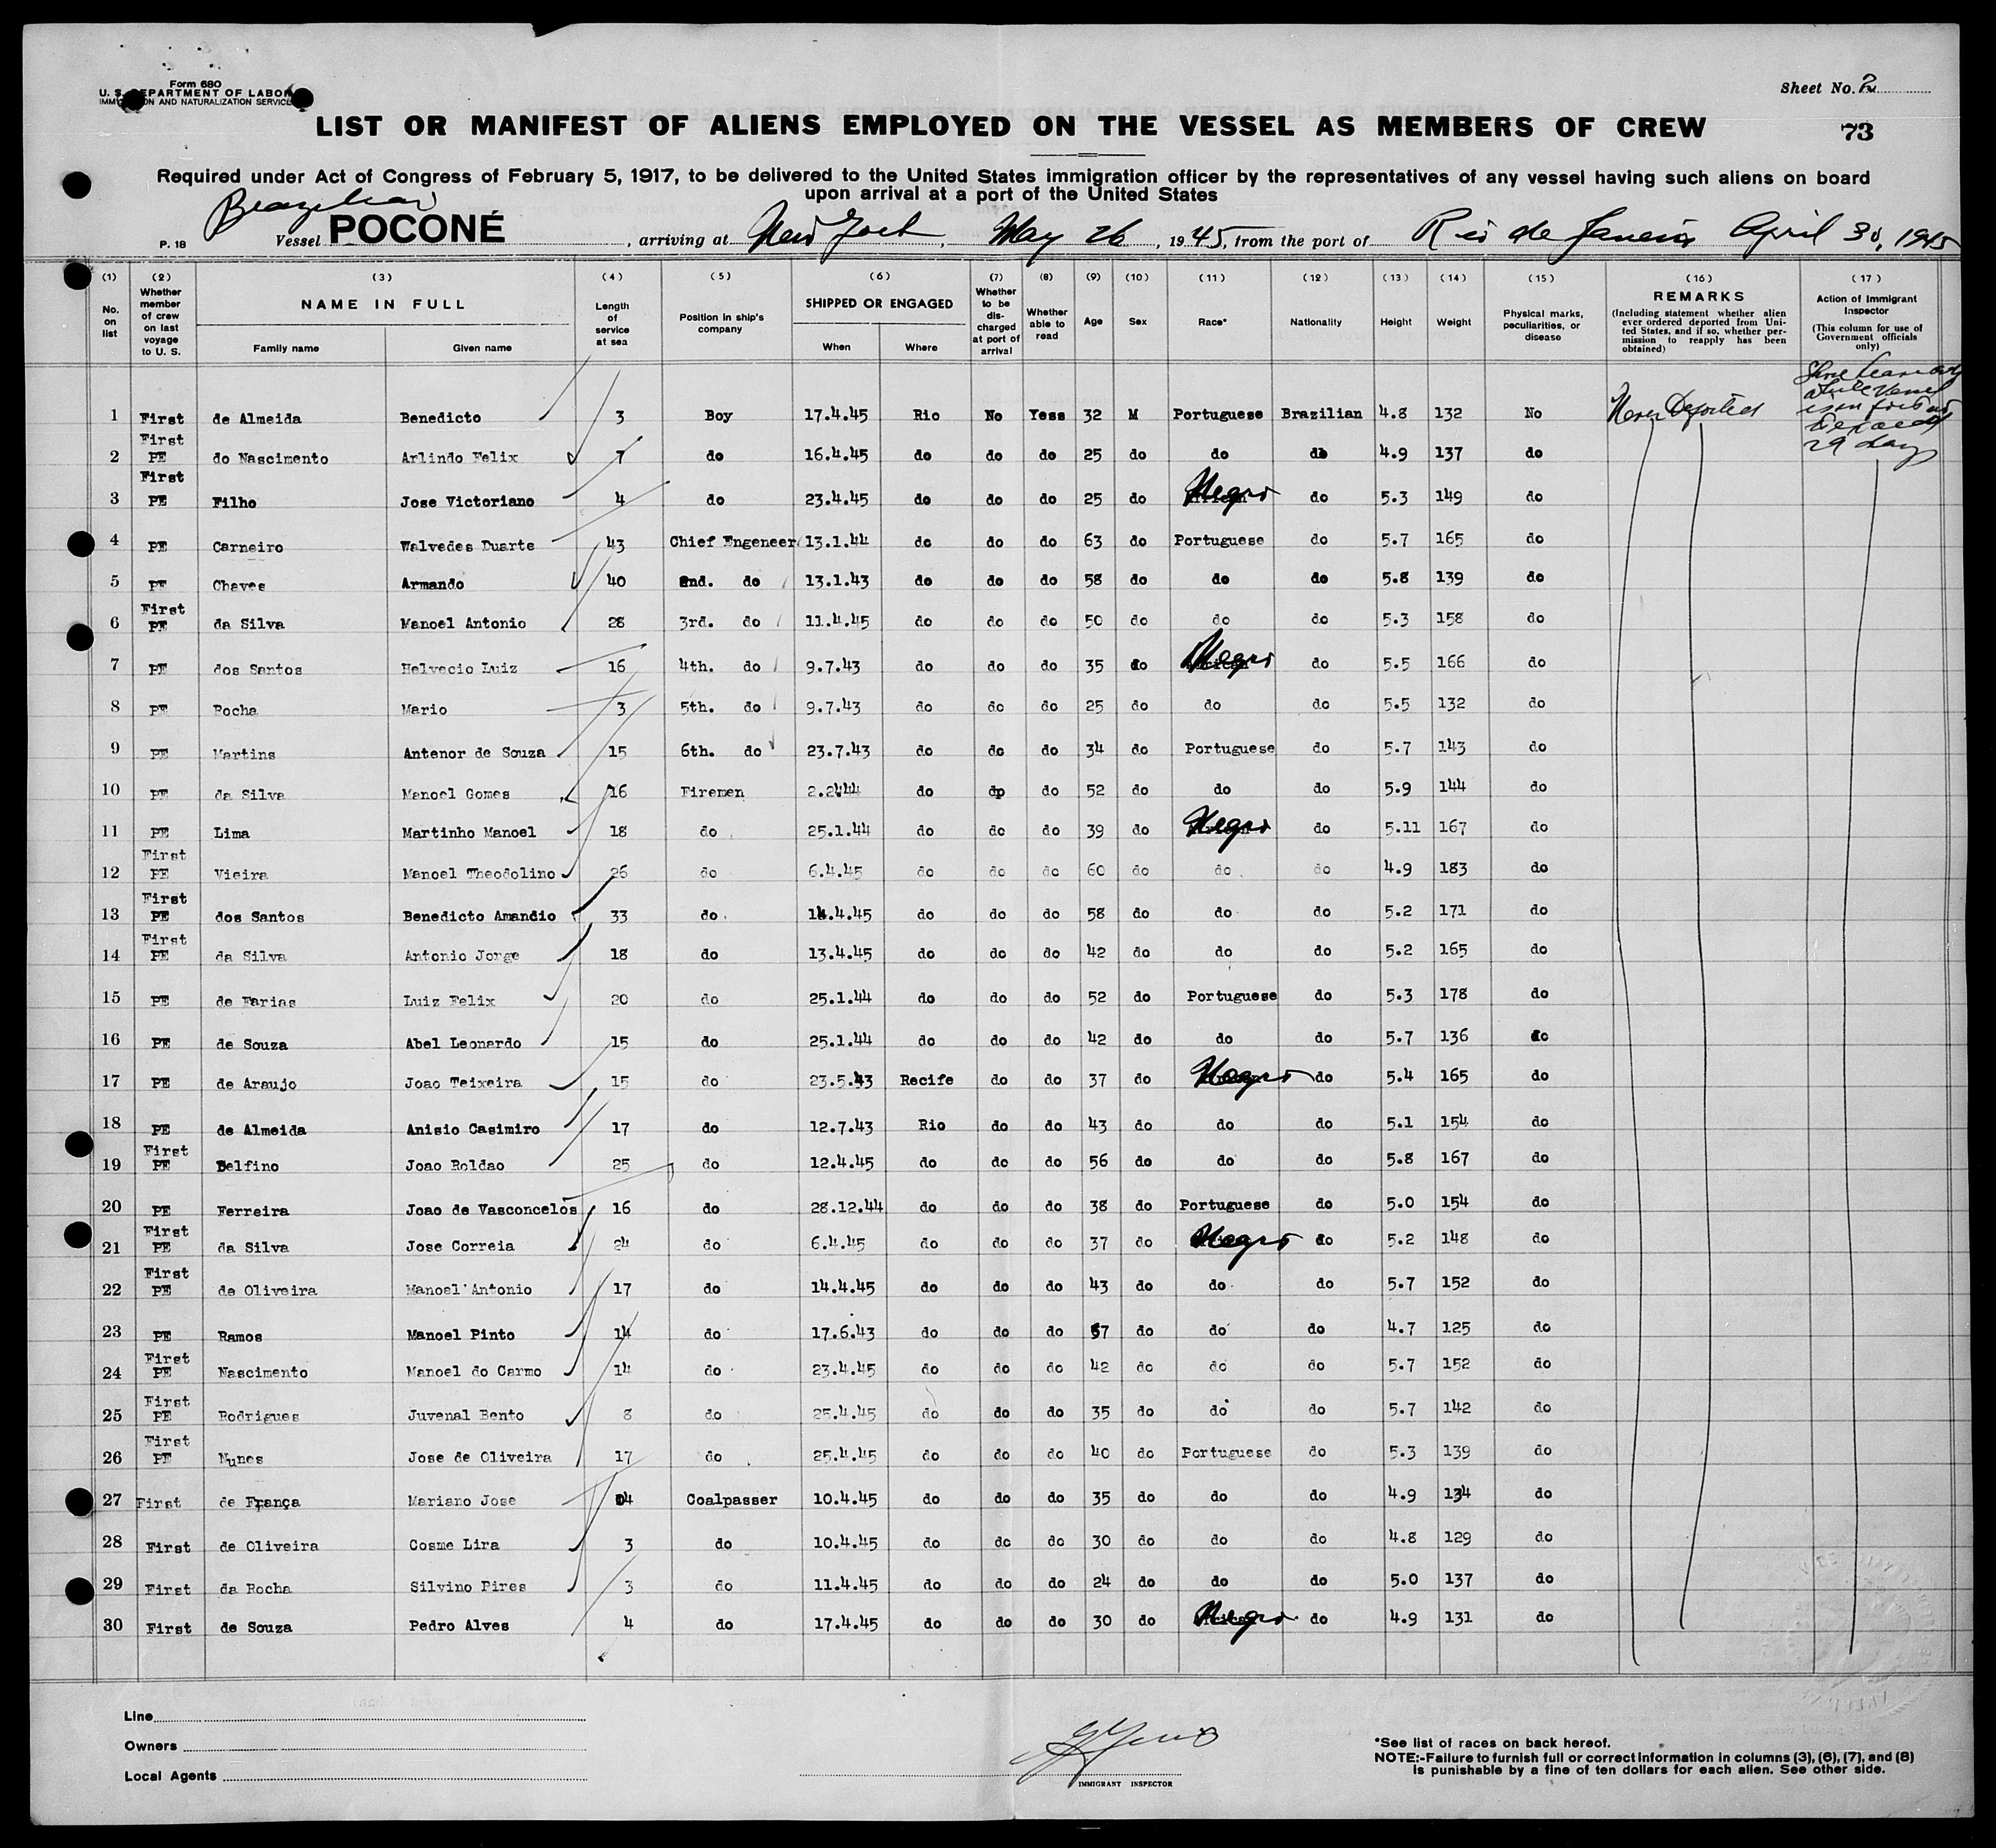 Form 680
U. S. DEPARTMENT OF LABOR
IMMIGRATION AND NATURALIZATION SERVICE
Sheet No. 2
LIST OR MANIFEST OF ALIENS EMPLOYED ON THE VESSEL AS MEMBERS OF CREW
73
Required under Act of Congress of February 5, 1917, to be delivered to the United States immigration officer by the representatives of any vessel having such aliens on board
upon arrival at a port of the United States
Brazilian
P. 18 Vessel POCONÉ, arriving at New York, May 26, 1945, from the port of Rio de Janeiro April 30, 1945
(1) (2) (3) (4) (5) (6) (7) (8) (9) (10) (11) (12) (13) (14) (15) (16) (17)
No. on list
Whether member of crew on last voyage to U. S.
NAME IN FULL
Family name Given name
Length of service at sea
Position in ship's company
SHIPPED OR ENGAGED
When Where
Whether to be discharged at port of arrival
Whether able to read
Age Sex Race* Nationality Height Weight
Physical marks, peculiarities, or disease
REMARKS
(Including statement whether alien ever ordered deported from United States, and if so, whether permission to reapply has been obtained)
Action of Immigrant Inspector
(This column for use of Government officials only)
1 First de Almeida Benedicto 3 Boy 17.4.45 Rio No Yess 32 M Portuguese Brazilian 4.8 132 No Never Deported
29 days
2 First PE do Nascimento Arlindo Felix 7 do 16.4.45 do do do 25 do do do 4.9 137 do
3 First PE Filho Jose Victoriano 4 do 23.4.45 do do do 25 do Negro do 5.3 149 do
4 PE Carneiro Walvedes Duarte 43 Chief Engeneer 13.1.44 do do do 63 do Portuguese do 5.7 165 do
5 PE Chaves Armando 40 2nd. do 13.1.43 do do do 58 do do do 5.8 139 do
6 First PE da Silva Manoel Antonio 28 3rd. do 11.4.45 do do do 50 do do do 5.3 158 do
7 PE dos Santos Helvecio Luiz 16 4th. do 9.7.43 do do do 35 do Negro do 5.5 166 do
8 PE Rocha Mario 3 5th. do 9.7.43 do do do 25 do do do 5.5 132 do
9 PE Martins Antenor de Souza 15 6th. do 23.7.43 do do do 34 do Portuguese do 5.7 143 do
10 PE da Silva Manoel Gomes 16 Firemen 2.2.44 do dp do 52 do do do 5.9 144 do
11 PE Lima Martinho Manoel 18 do 25.1.44 do do do 39 do Negro do 5.11 167 do
12 First PE Vieira Manoel Theodolino 26 do 6.4.45 do do do 60 do do do 4.9 183 do
13 First PE dos Santos Benedicto Amandio 33 do 14.4.45 do do do 58 do do do 5.2 171 do
14 First PE da Silva Antonio Jorge 18 do 13.4.45 do do do 42 do do do 5.2 165 do
15 PE de Farias Luiz Felix 20 do 25.1.44 do do do 52 do Portuguese do 5.3 178 do
16 PE de Souza Abel Leonardo 15 do 25.1.44 do do do 42 do do do 5.7 136 do
17 PE de Araujo Joao Teixeira 15 do 23.5.43 Recife do do 37 do Negro do 5.4 165 do
18 PE de Almeida Anisio Casimiro 17 do 12.7.43 Rio do do 43 do do do 5.1 154 do
19 First PE Belfino Joao Roldao 25 do 12.4.45 do do do 56 do do do 5.8 167 do
20 PE Ferreira Joao de Vasconcelos 16 do 28.12.44 do do do 38 do Portuguese do 5.0 154 do
21 First PE da Silva Jose Correia 24 do 6.4.45 do do do 37 do Negro do 5.2 148 do
22 First PE de Oliveira Manoel Antonio 17 do 14.4.45 do do do 43 do do do 5.7 152 do
23 PE Ramos Manoel Pinto 14 do 17.6.43 do do do 57 do do do 4.7 125 do
24 First PE Nascimento Manoel do Carmo 14 do 23.4.45 do do do 42 do do do 5.7 152 do
25 First PE Rodrigues Juvenal Bento 8 do 25.4.45 do do do 35 do do do 5.7 142 do
26 First PE Nunes Jose de Oliveira 17 do 25.4.45 do do do 40 do Portuguese do 5.3 139 do
27 First de França Mariano Jose 4 Coalpasser 10.4.45 do do do 35 do do do 4.9 134 do
28 First de Oliveira Cosme Lira 3 do 10.4.45 do do do 30 do do do 4.8 129 do
29 First da Rocha Silvino Pires 3 do 11.4.45 do do do 24 do do do 5.0 137 do
30 First de Souza Pedro Alves 4 do 17.4.45 do do do 30 do Negro do 4.9 131 do
Line
Owners
Local Agents
IMMIGRANT INSPECTOR
*See list of races on back hereof.
NOTE:-Failure to furnish full or correct information in columns (3), (6), (7), and (8)
is punishable by a fine of ten dollars for each alien. See other side.